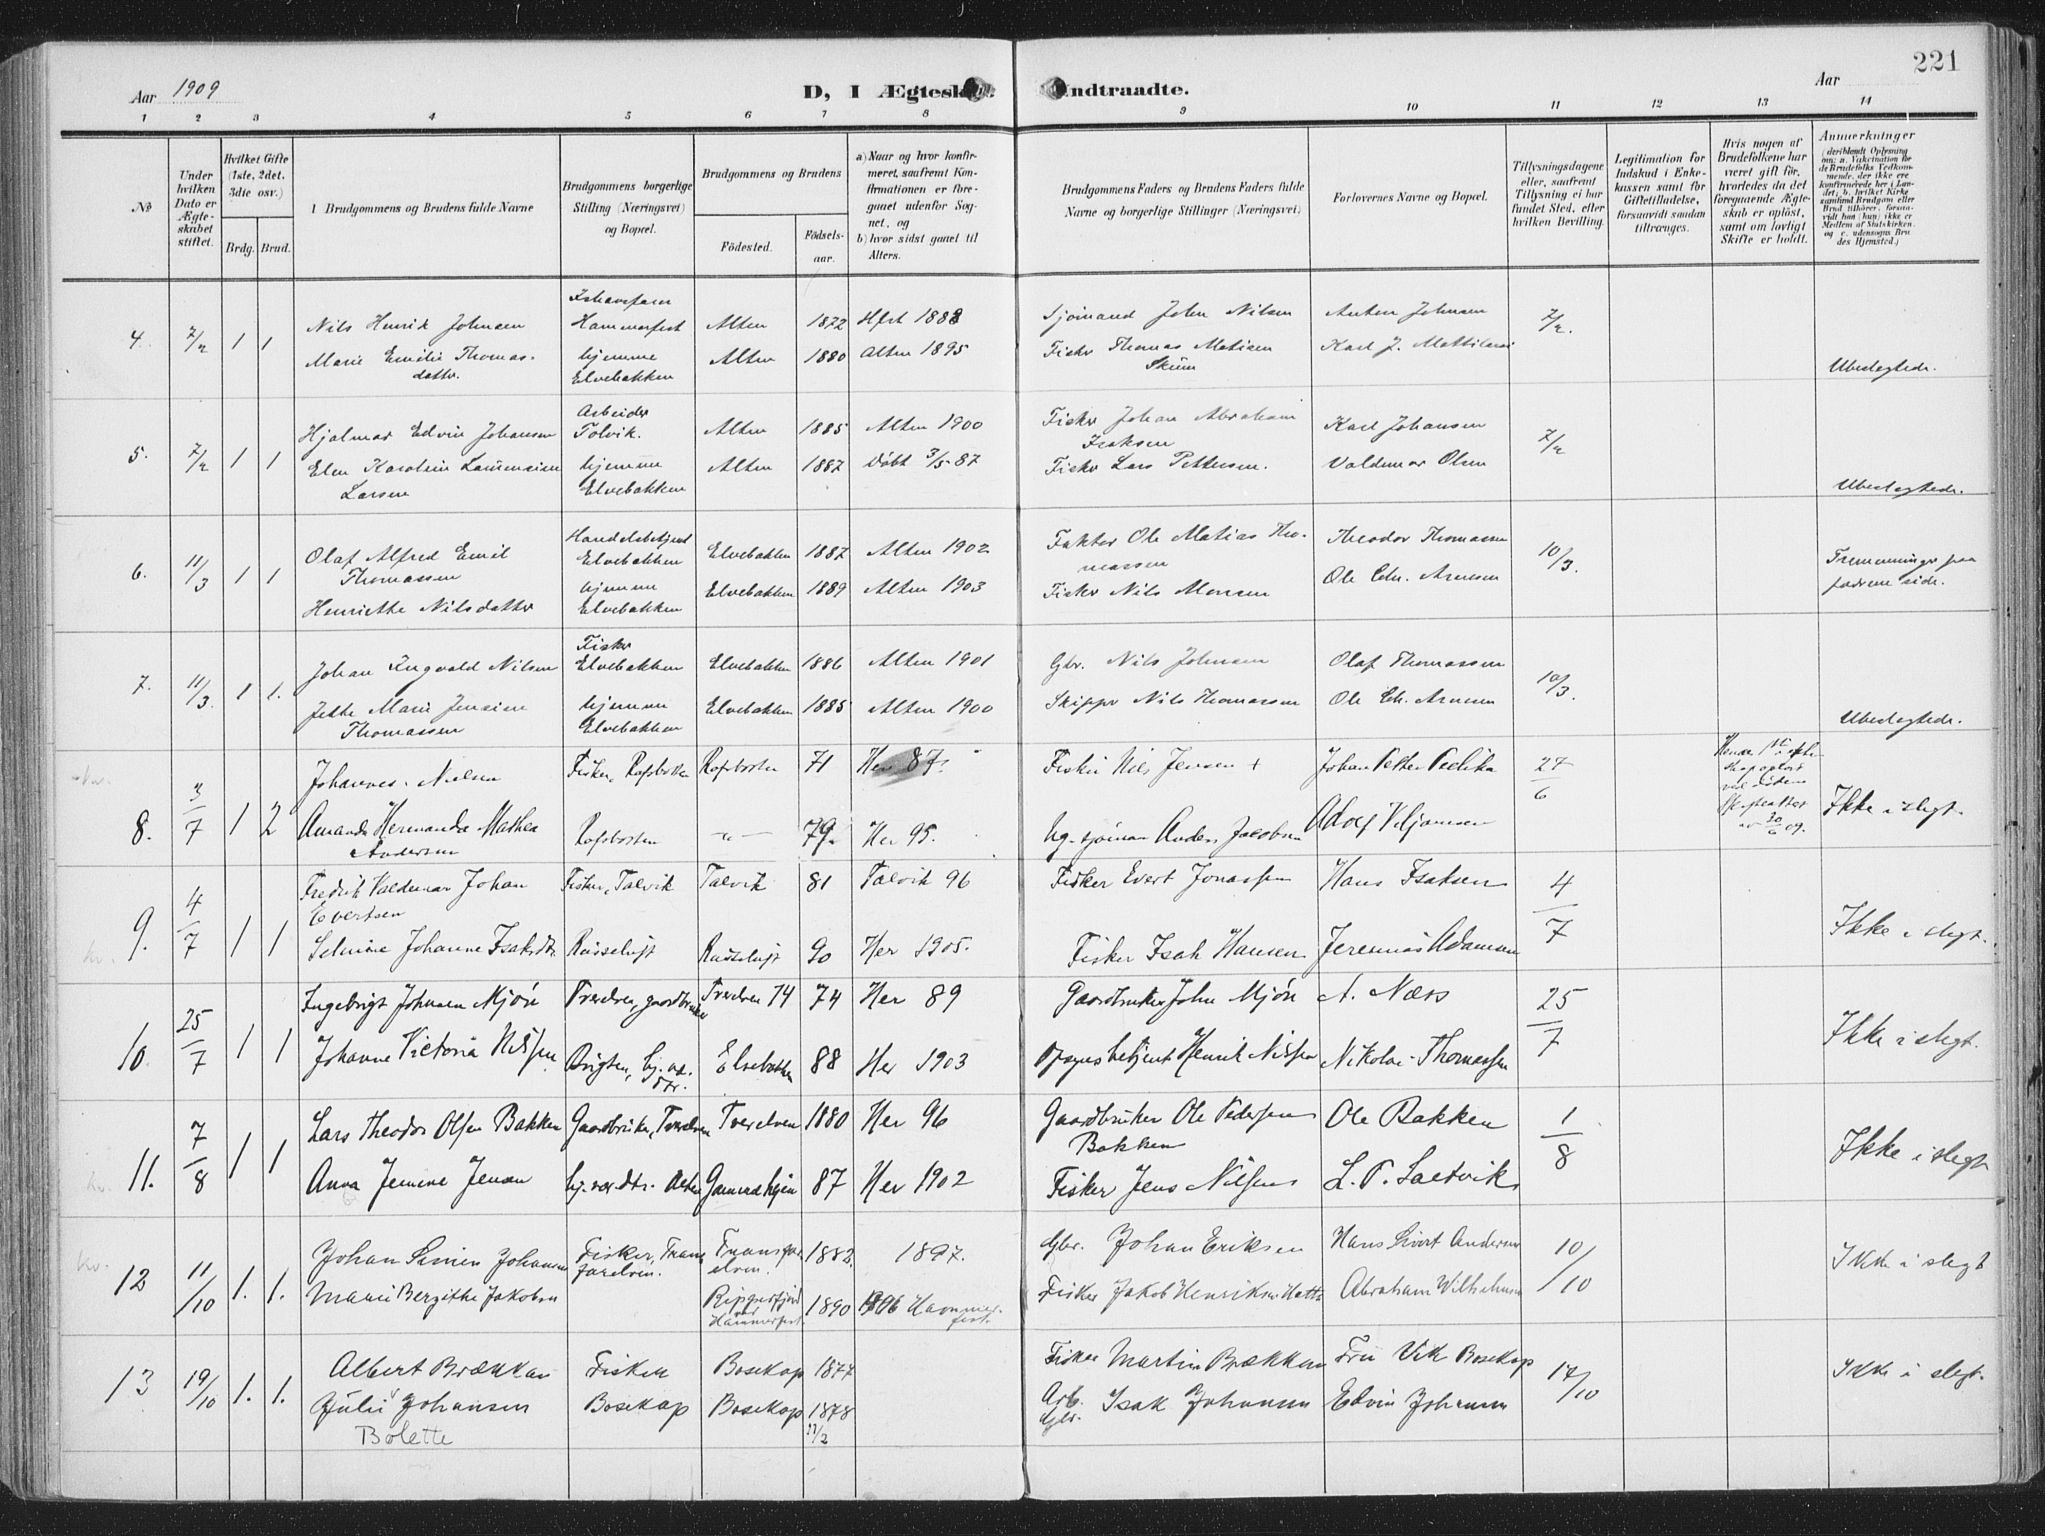 221
Aar 1909
D, I Ægtesk
Indtraadte.
Aar
1 2 3 4 5 6 7 8 9 10 11 12 13 14
№
Under hvilken Dato er Ægteskabet stiftet.
Hvilket Gifte (1ste, 2det, 3die osv.)
Brdg. Brud.
Brudgommens og Brudens fulde Navne
Brudgommens borgerlige Stilling (Næringsvei) og Bopæl.
Brudgommens og Brudens
Fødested.
Fødselsaar.
a) Naar og hvor konfirmeret, saafremt Konfirmationen er foregaaet udenfor Sognet, og
b) hvor sidst gaaet til Alters.
Brudgommens Faders og Brudens Faders fulde Navne og borgerlige Stillinger (Næringsvei)
Forlovernes Navne og Bopæl.
Tillysningsdagene eller, saafremt Tillysning ei har fundet Sted, efter hvilken Bevilling.
Legitimation for Indskud i Enkekassen samt for Giftetilladelse, forsaavidt saadan tiltrænges.
Hvis nogen af Brudefolkene har været gift før, hvorledes da det foregaaende Ægteskab er opløst, samt om lovligt Skifte er holdt.
Anmerkninger
(deriblandt Oplysning om: a. Vakcination for de Brudefolks Vedkommende, der ikke ere konfirmerede her i Landet; b. hvilket Kirkesamfund Brudgom eller Brud tilhører, forsaavidt han (hun) ikke er Medlem af Statskirken, og c. udensogns Brudes Hjemsted.)
4. 7/2 1 1 Nils Henrik Johnsen Hammerfest Alten 1872 Hfest 1888 Sjømand John Nilsen Anton Johnsen 7/2.
Marie Emilie Thomasdatter. hjemme Elvebakken Alten 1880 Alten 1895 Fisker Thomas Matisen Skum Karl J. Ubeslegtede.
5. 7/2 1 1 Hjalmar Edvin Johansen Arbeider Tolvik. Alten 1885 Alten 1900 Fisker Johan Abraham Isaksen Karl Johansen 7/2
Elen Karoline Larsen hjemme Elvebakken Alten 1887 Døbt 3/5-87 Fisker Lars Pettersen. Valdemar Olsen Ubeslegtede.
6. 11/3 1 1 Olaf Alfred Emil Thomassen Handelsbetjent Elvebakken Elvebakken 1887 Alten 1902 Faktor Ole Matias Thomassen Theodor Thomassen 10/3.
Henriette Nilsdatter hjemme Elvebakken Elvebakken 1889 Alten 1903 Fisker Nils Monsen Ole Chr. Arnesen Tremenninger paa fædrene side.
7. 11/3. 1 1. Johan Ingvald Nilsen Fisker Elvebakken Elvebakken 1886 Alten 1901 Gbr. Nils Johnsen Olaf Thomassen 10/3.
Jette Marie Jensine Thomassen hjemme Elvebakken Elvebakken 1885 Alten 1900 Skipper Nils Thomassen Ole Chr. Arnesen Ubeslegtede.
8. 3/7 1 2 Johannes Nielsen Fisker, Rafsbotten Rafsbotten 71 Her 87. Fisker Nils Jensen + Johan Petter 27/6
Amanda Hermanda Mathea Andersen Rafsbotten — " — 79. Her 95. Anders Jacobsen Adolf Viljamsen 30/6 09. Ikke i slegt.
9. 4/7 1 1 Fredrik Valdemar Johan Evertsen Fisker, Talvik Talvik 81 Talvik 96 Fisker Evert Jonassen Hans Isaksen 4/7
Selmine Johanne Isaksdtr. Russeluft Russeluft 90 Her 1905. Fisker Isak Hansen Jeremias Adamsen Ikke i slegt.
10. 25/7 1 1 Ingebrigt Johnsen Mjøn Tverelven, gaardbruker Tverelven 74 74 Her 89 Gaardbruker John Mjøn A. Næss 25/7
Johanne Victoria Nilsen Elvebakken 88 Her 1903 Opsynsbetjent Henrik Nilsen Nikolai Thomassen Ikke i slegt.
11. 7/8 1 1 Lars Theodor Olsen Bakken Gaardbruker, Tverelven Tverelven 1880 Her 96 Gaardbruker Ole Pedersen Bakken Ole Bakken 1/8
Anna Jemine Jensen hj. vær. dtr. Alten 87 Her 1902 Fisker Jens Nilsen L. P. Saltvik Ikke i slegt
12 11/10 1. 1. Johan Simen Johansen Fisker, 1882. 1897. Gbr. Johan Eriksen Hans Sivert Andersen 10/10
Marie Bergithe Jakobsen Reppefjord ved Hammerfest. 1890 1906 Hammerfest. Fisker Jakob Henriksen Abraham Vilhelmsen Ikke i slegt
13 19/10 1. 1. Albert Brækkan Fisker Bosekop 1877 Fisker Martin Brækkan Fru Vik Bosekop 17/10
Julie Johansen Bosekop Bosekop 1878 Arb. Gbr. Isak Johansen Edvin Johansen Ikke i slegt.
Bolette